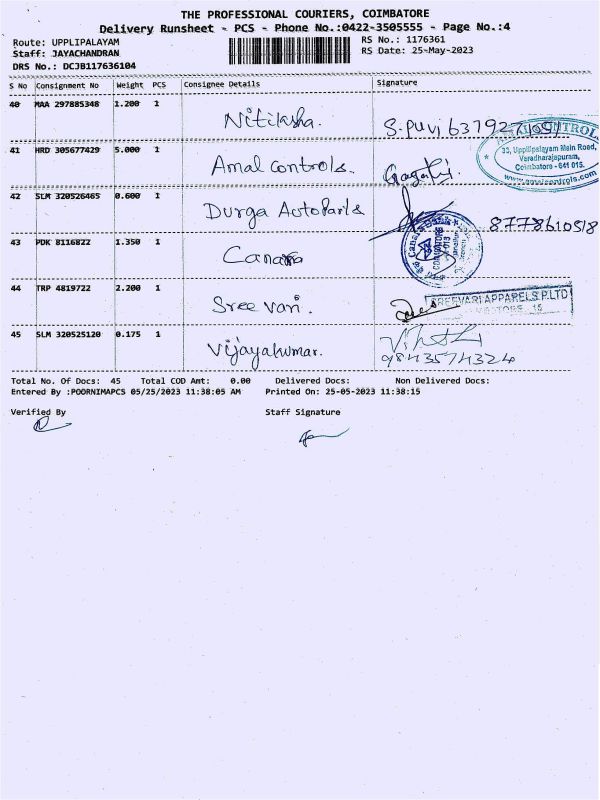 THE PROFESSIONAL COURIERS, COIMBATORE
Delivery Runsheet - PCS - Phone No.:0422-3505555 - Page No.:4
Route: UPPLIPALAYAM
RS No.: 1176361
Staff: JAYACHANDRAN
RS Date: 25-May-2023
DRS No.: DCJB117636104
S No Consignment No Weight PCS Consignee Details Signature
40 MAA 297885348 1.200 1 Nitiksha. S.puvi
41 HRD 305677429 5.000 1 Amal controls.
AMAL CONTROLS
33, Uppilipalayam Main Road,
Varadharajapuram,
Coimbatore - 641 015.
42 SLM 320526465 0.600 1 Durga AutoParts 8778610518
43 PDK 8116822 1.350 1 Canara
Canara Bank
44 TRP 4819722 2.200 1 Sree vari.
SREEVARI APPARELS P.LTD
45 SLM 320525120 0.175 1 Vijayakumar.
9843574324
Total No. Of Docs: 45 Total COD Amt: 0.00 Delivered Docs: Non Delivered Docs:
Entered By :POORNIMAPCS 05/25/2023 11:38:05 AM Printed On: 25-05-2023 11:38:15
Verified By Staff Signature